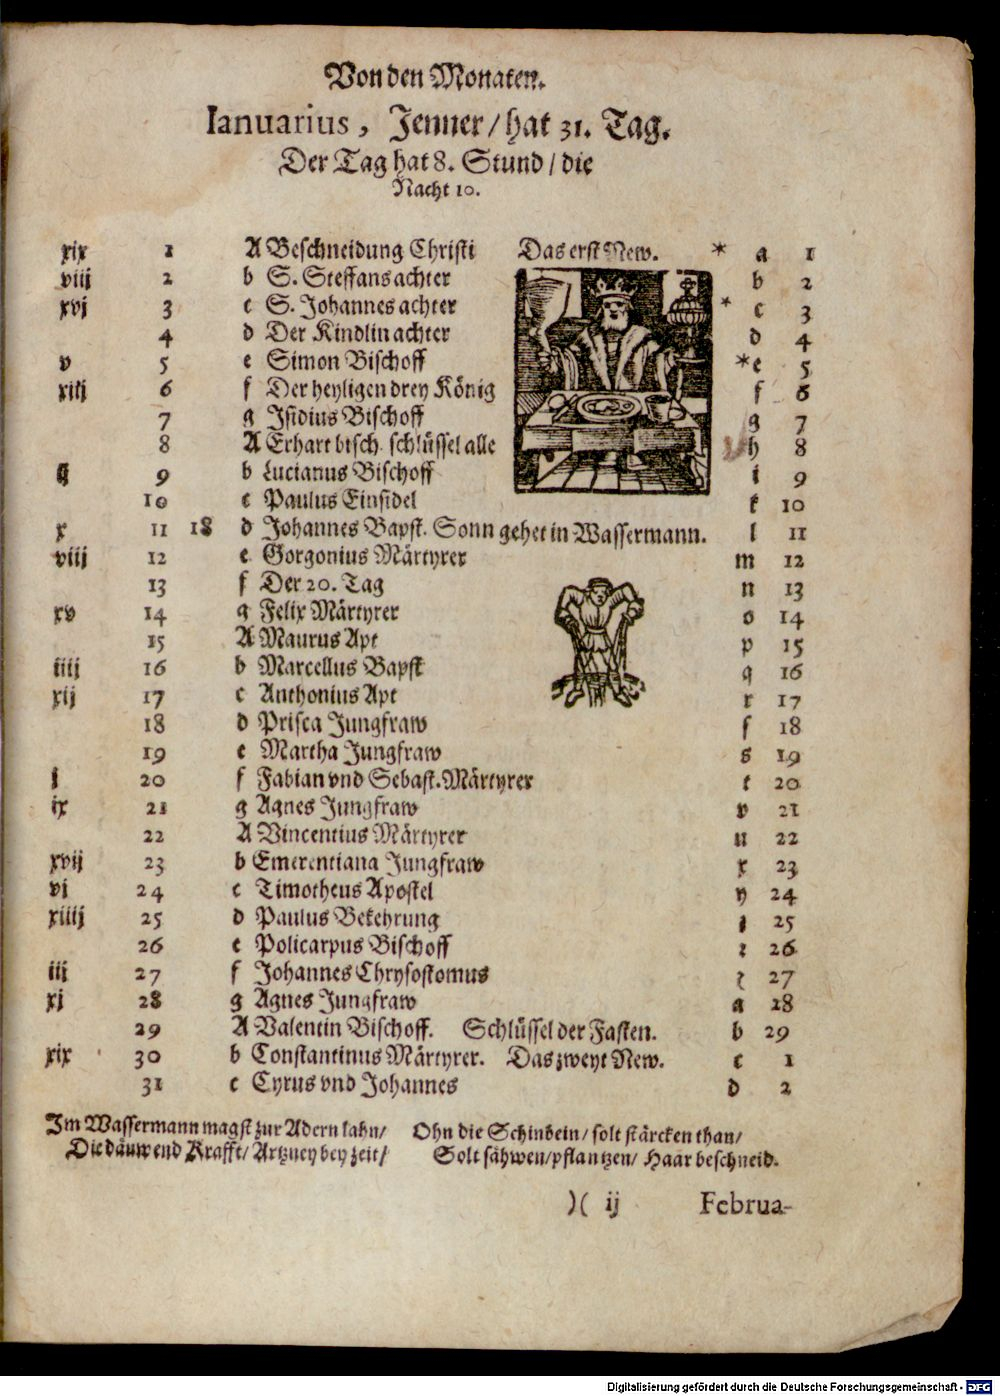 Von den Monaten.
Ianuarius, Jenner/hat 31. Tag.
Der Tag hat 8. Stund/die
Nacht 10.
xix 1 A Beschneidung Christi Das erst New. * a 1
viij 2 b S. Steffans achter b 2
xvj 3 c S. Johannes achter * c 3
4 d Der Kindlin achter d 4
v 5 e Simon Bischoff * e 5
xiij 6 f Der heyligen drey König f 6
7 g Isidius Bischoff g 7
8 A Erhart bisch. schlüssel alle h 8
9 b Lucianus Bischoff i 9
10 c Paulus Einsidel k 10
x 11 18 d Johannes Bapst. Sonn gehet in Wassermann. l 11
viij 12 e Gorgonius Märtyrer m 12
13 f Der 20. Tag n 13
xv 14 g Felix Märtyrer o 14
15 A Maurus Apt p 15
iiij 16 b Marcellus Bapst q 16
xij 17 c Anthonius Apt r 17
18 d Prisca Jungfraw ſ 18
19 e Martha Jungfraw s 19
j 20 f Fabian vnd Sebast. Märtyrer t 20
ix 21 g Agnes Jungfraw v 21
22 A Vincentius Märtyrer u 22
xvij 23 b Emerentiana Jungfraw x 23
vj 24 c Timotheus Apostel y 24
xiiij 25 d Paulus Bekehrung z 25
26 e Policarpus Bischoff 26
iij 27 f Johannes Chrysostomus 27
xj 28 g Agnes Jungfraw a 28
29 A Valentin Bischoff. Schlüssel der Fasten. b 29
xix 30 b Constantinus Märtyrer. Das zweyt New. c 1
31 c Cyrus vnd Johannes d 2
Im Wassermann magst zur Adern lahn/ Ohn die Schinbein/ solt stärcken than/
Die däuwend Krafft/ Artzney bey zeit/ Solt sähwen/pflantzen/ Haar beschneid.
)( ij Februa-
Digitalisierung gefördert durch die Deutsche Forschungsgemeinschaft - DFG